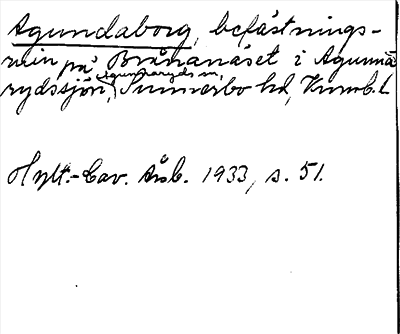 Agundaborg, befästnings-
ruin på Brånanäset i Agunna
rydssjön, Agunnaryds sn, Sunnerbo hd, Kronob. l.
Hylt.-Cav. Årsb. 1933, s. 51.